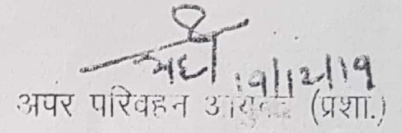 19/12/19
अपर परिवहन आयुक्त (प्रशा.)